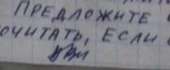 ПРЕДЛОЖИТЕ
ОЧИТАТЬ, ЕСЛИ